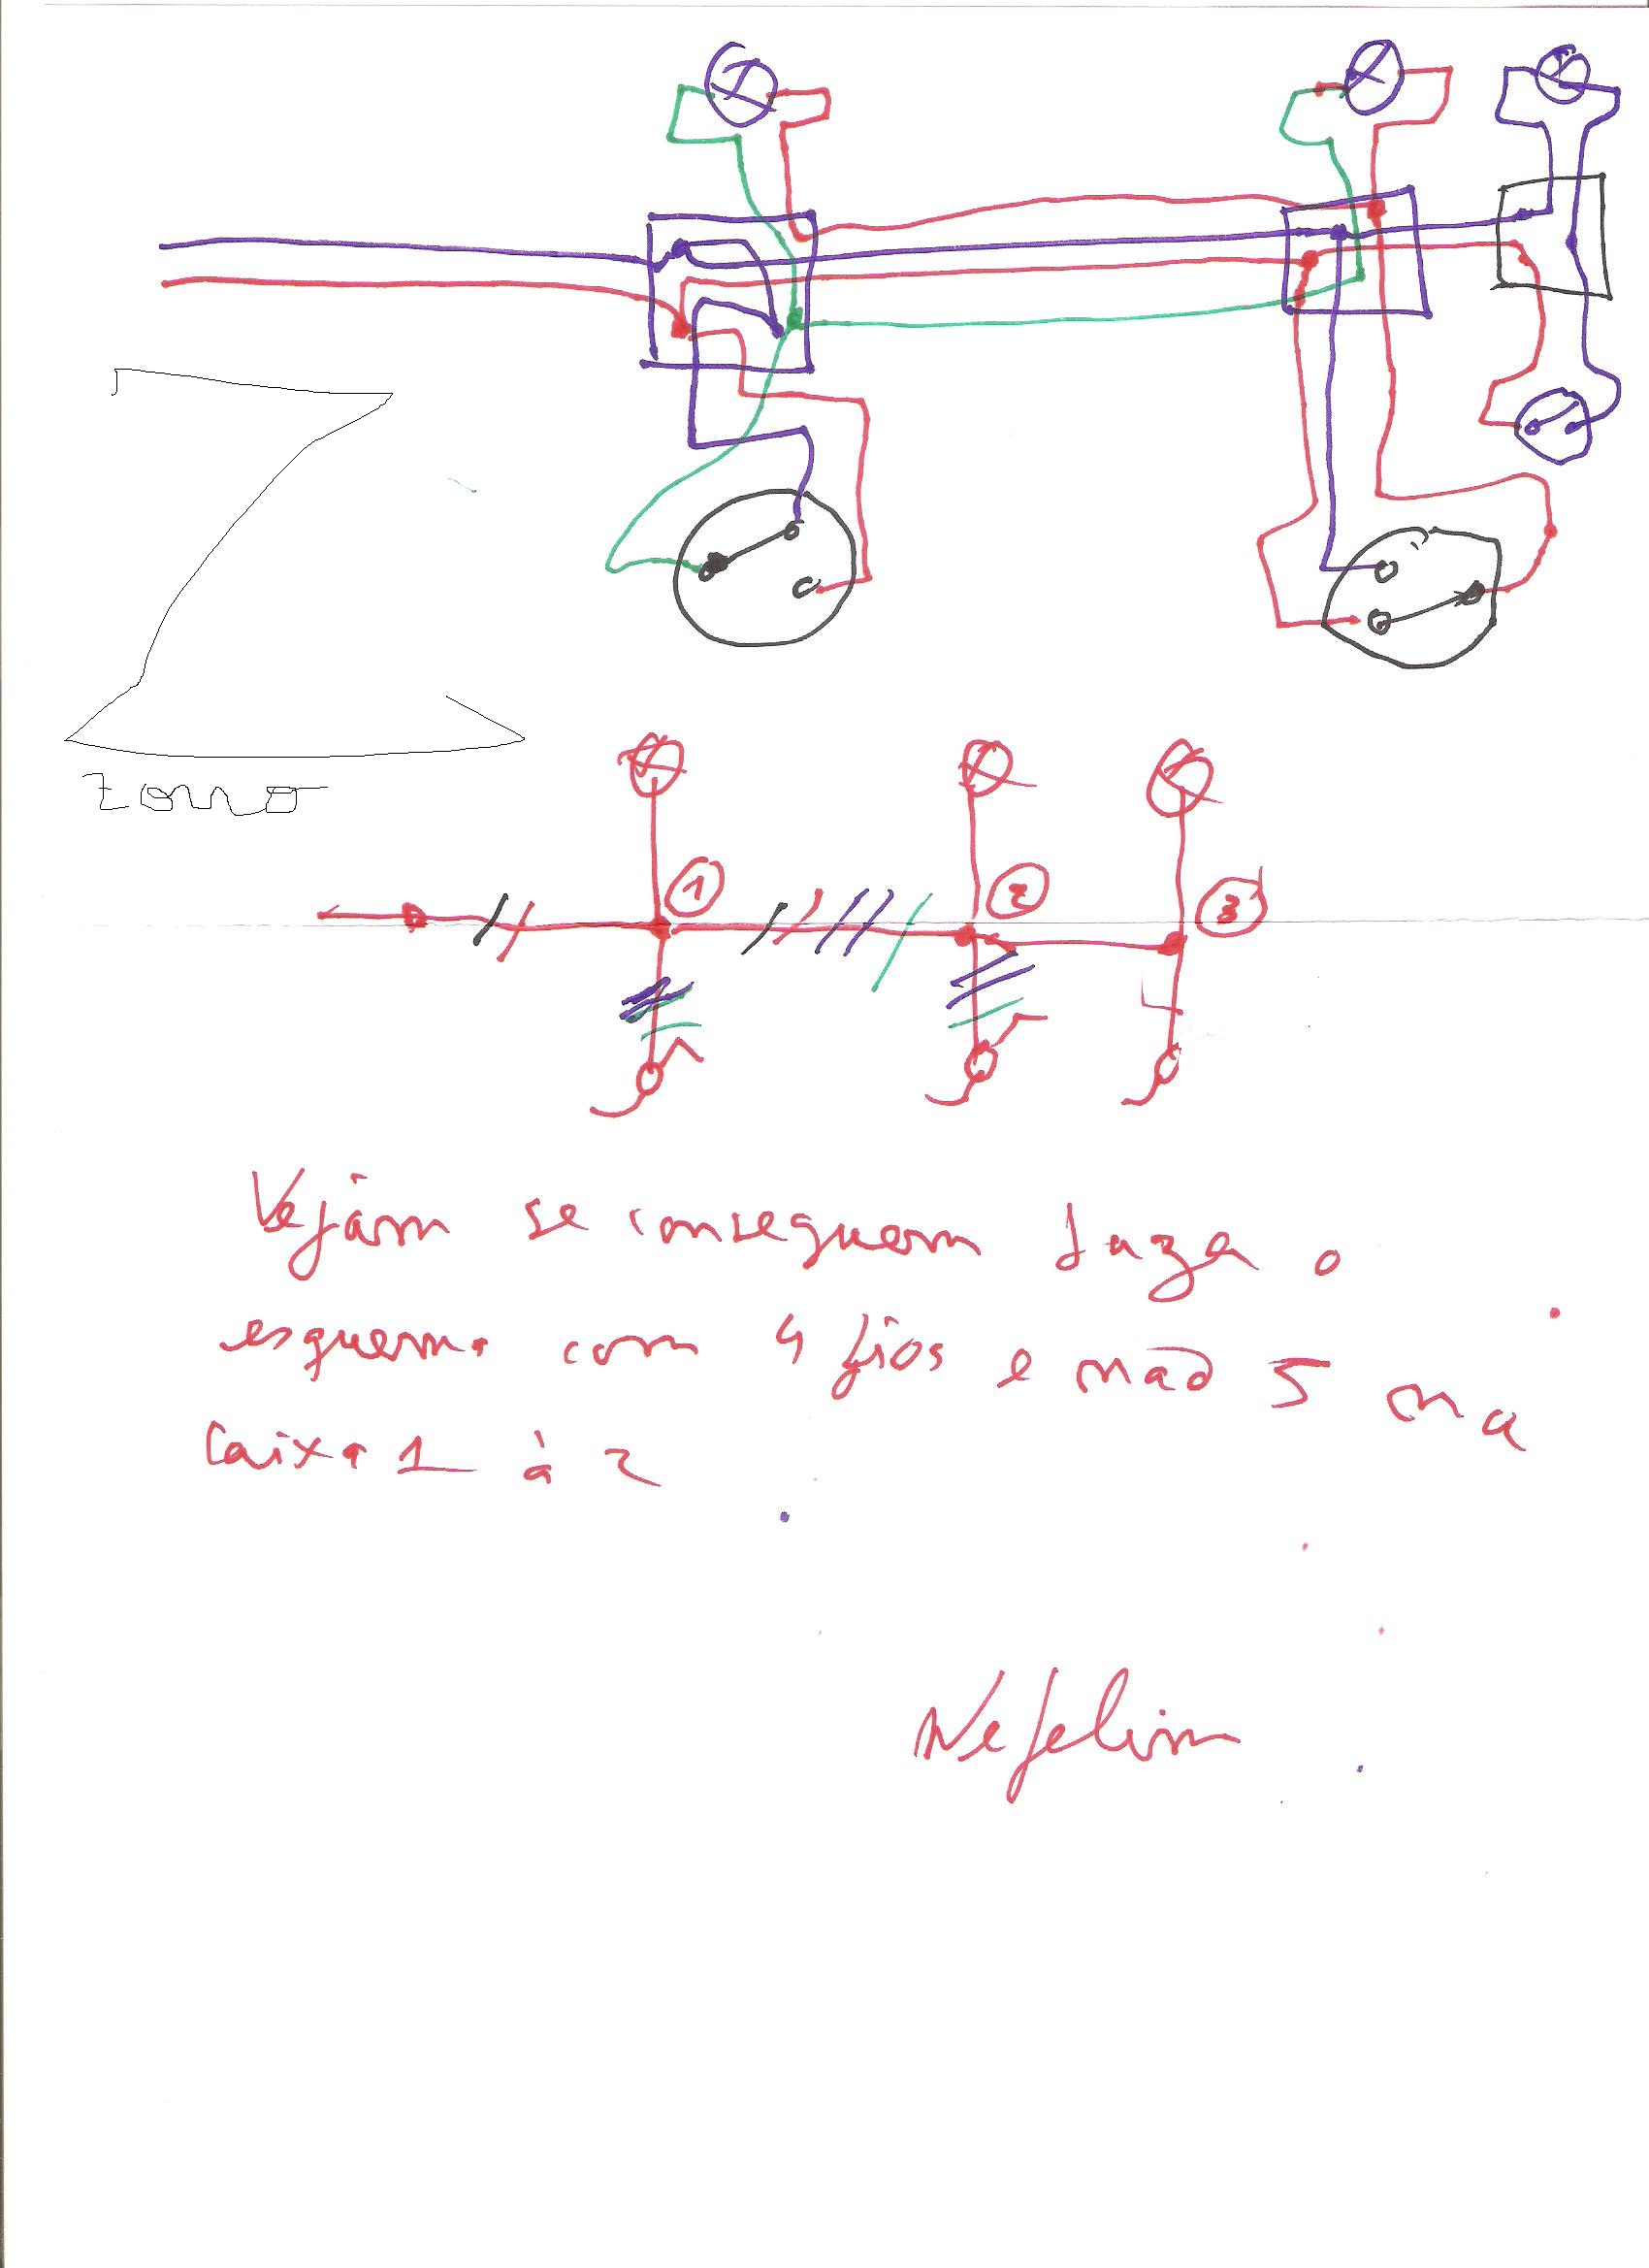 zorro
1
2
3
Vejàm se conseguem fazer o
esquema com 4 fios e não 5 na
Caixa 1 à 2
Nefelim